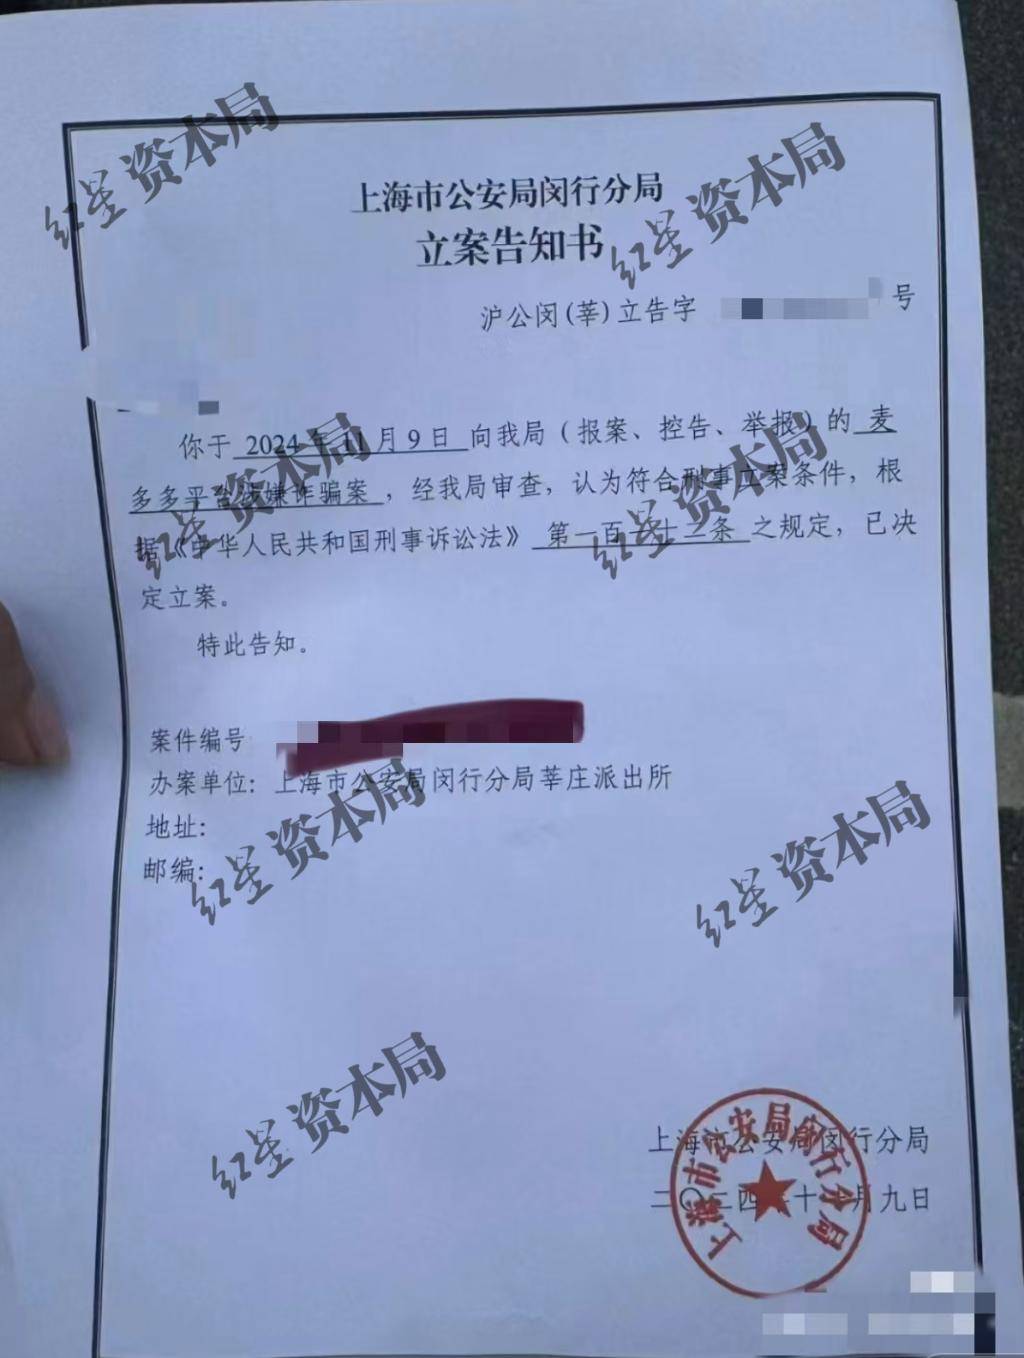 上海市公安局闵行分局
立案告知书
沪公闵(莘)立告字 号
你于 2024年11月9日 向我局（报案、控告、举报）的 麦
多多平台涉嫌诈骗案 ，经我局审查，认为符合刑事立案条件，根
据《中华人民共和国刑事诉讼法》 第一百一十二条 之规定，已决
定立案。
特此告知。
案件编号
办案单位：上海市公安局闵行分局莘庄派出所
地址：
邮编：
上海市公安局闵行分局
二〇二四 十 月九日
上海市公安局闵行分局
红星资本局
红星资本局
红星资本局
红星资本局
红星资本局
红星资本局
红星资本局